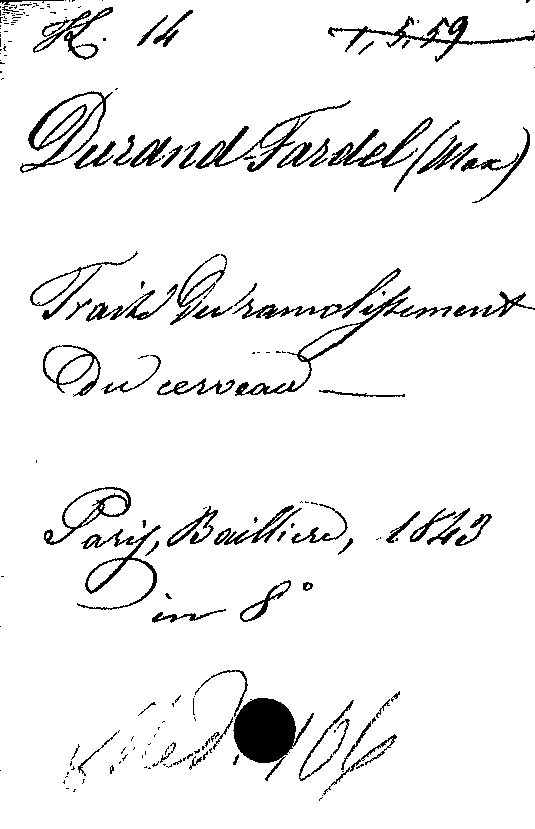 H. 14 1,5,59
Durand-Fardel (Max)
Traité du ramolissement
du cerveau —
Paris, Baillière, 1843
in 8°
8. Méd. 106